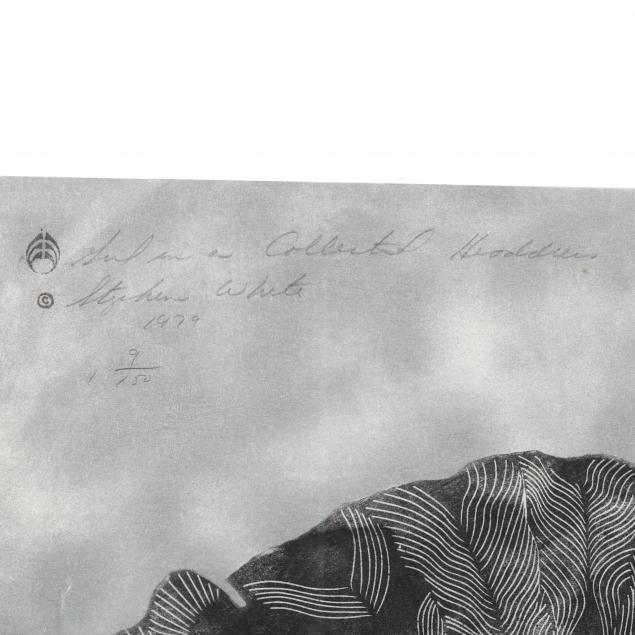 Girl in a Collected Headdress
© Stephen White
1979
9/150